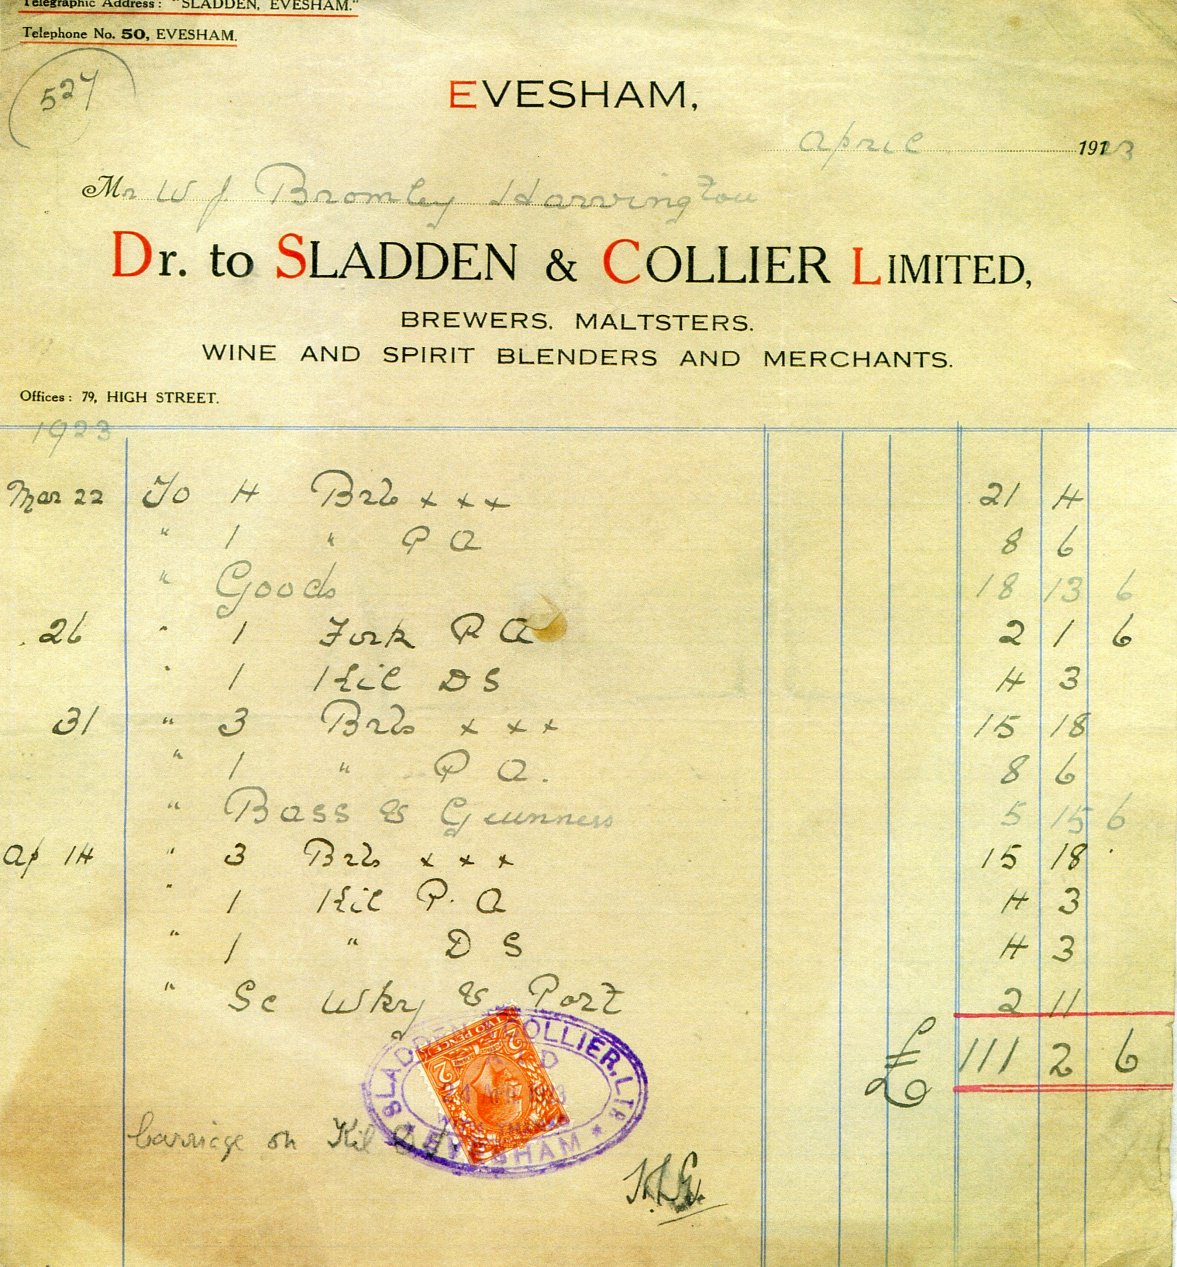 Telegraphic Address: "SLADDEN, EVESHAM."
Telephone No. 50, EVESHAM.
527
EVESHAM,
April 1923
Mr W J Bromley Harvington
Dr. to SLADDEN & COLLIER LIMITED,
BREWERS. MALTSTERS.
WINE AND SPIRIT BLENDERS AND MERCHANTS.
Offices: 79, HIGH STREET.
1923
Mar 22 To 4 Brls x x x 21 4
" 1 " P A 8 6
" Goods 18 13 6
26 " 1 Firk P A 2 1 6
" 1 Kil D S 4 3
31 " 3 Brls x x x 15 18
" 1 " P A. 8 6
" Bass & Guinness 5 15 6
Ap 14 " 3 Brls x x x 15 18
" 1 Kil P. A 4 3
" 1 " D S 4 3
" Sc Wky & Port 2 11
£ 111 2 6
SLADDEN COLLIER, LTD
TWO PENCE
2 2
EVESHAM
Carriage on Kil